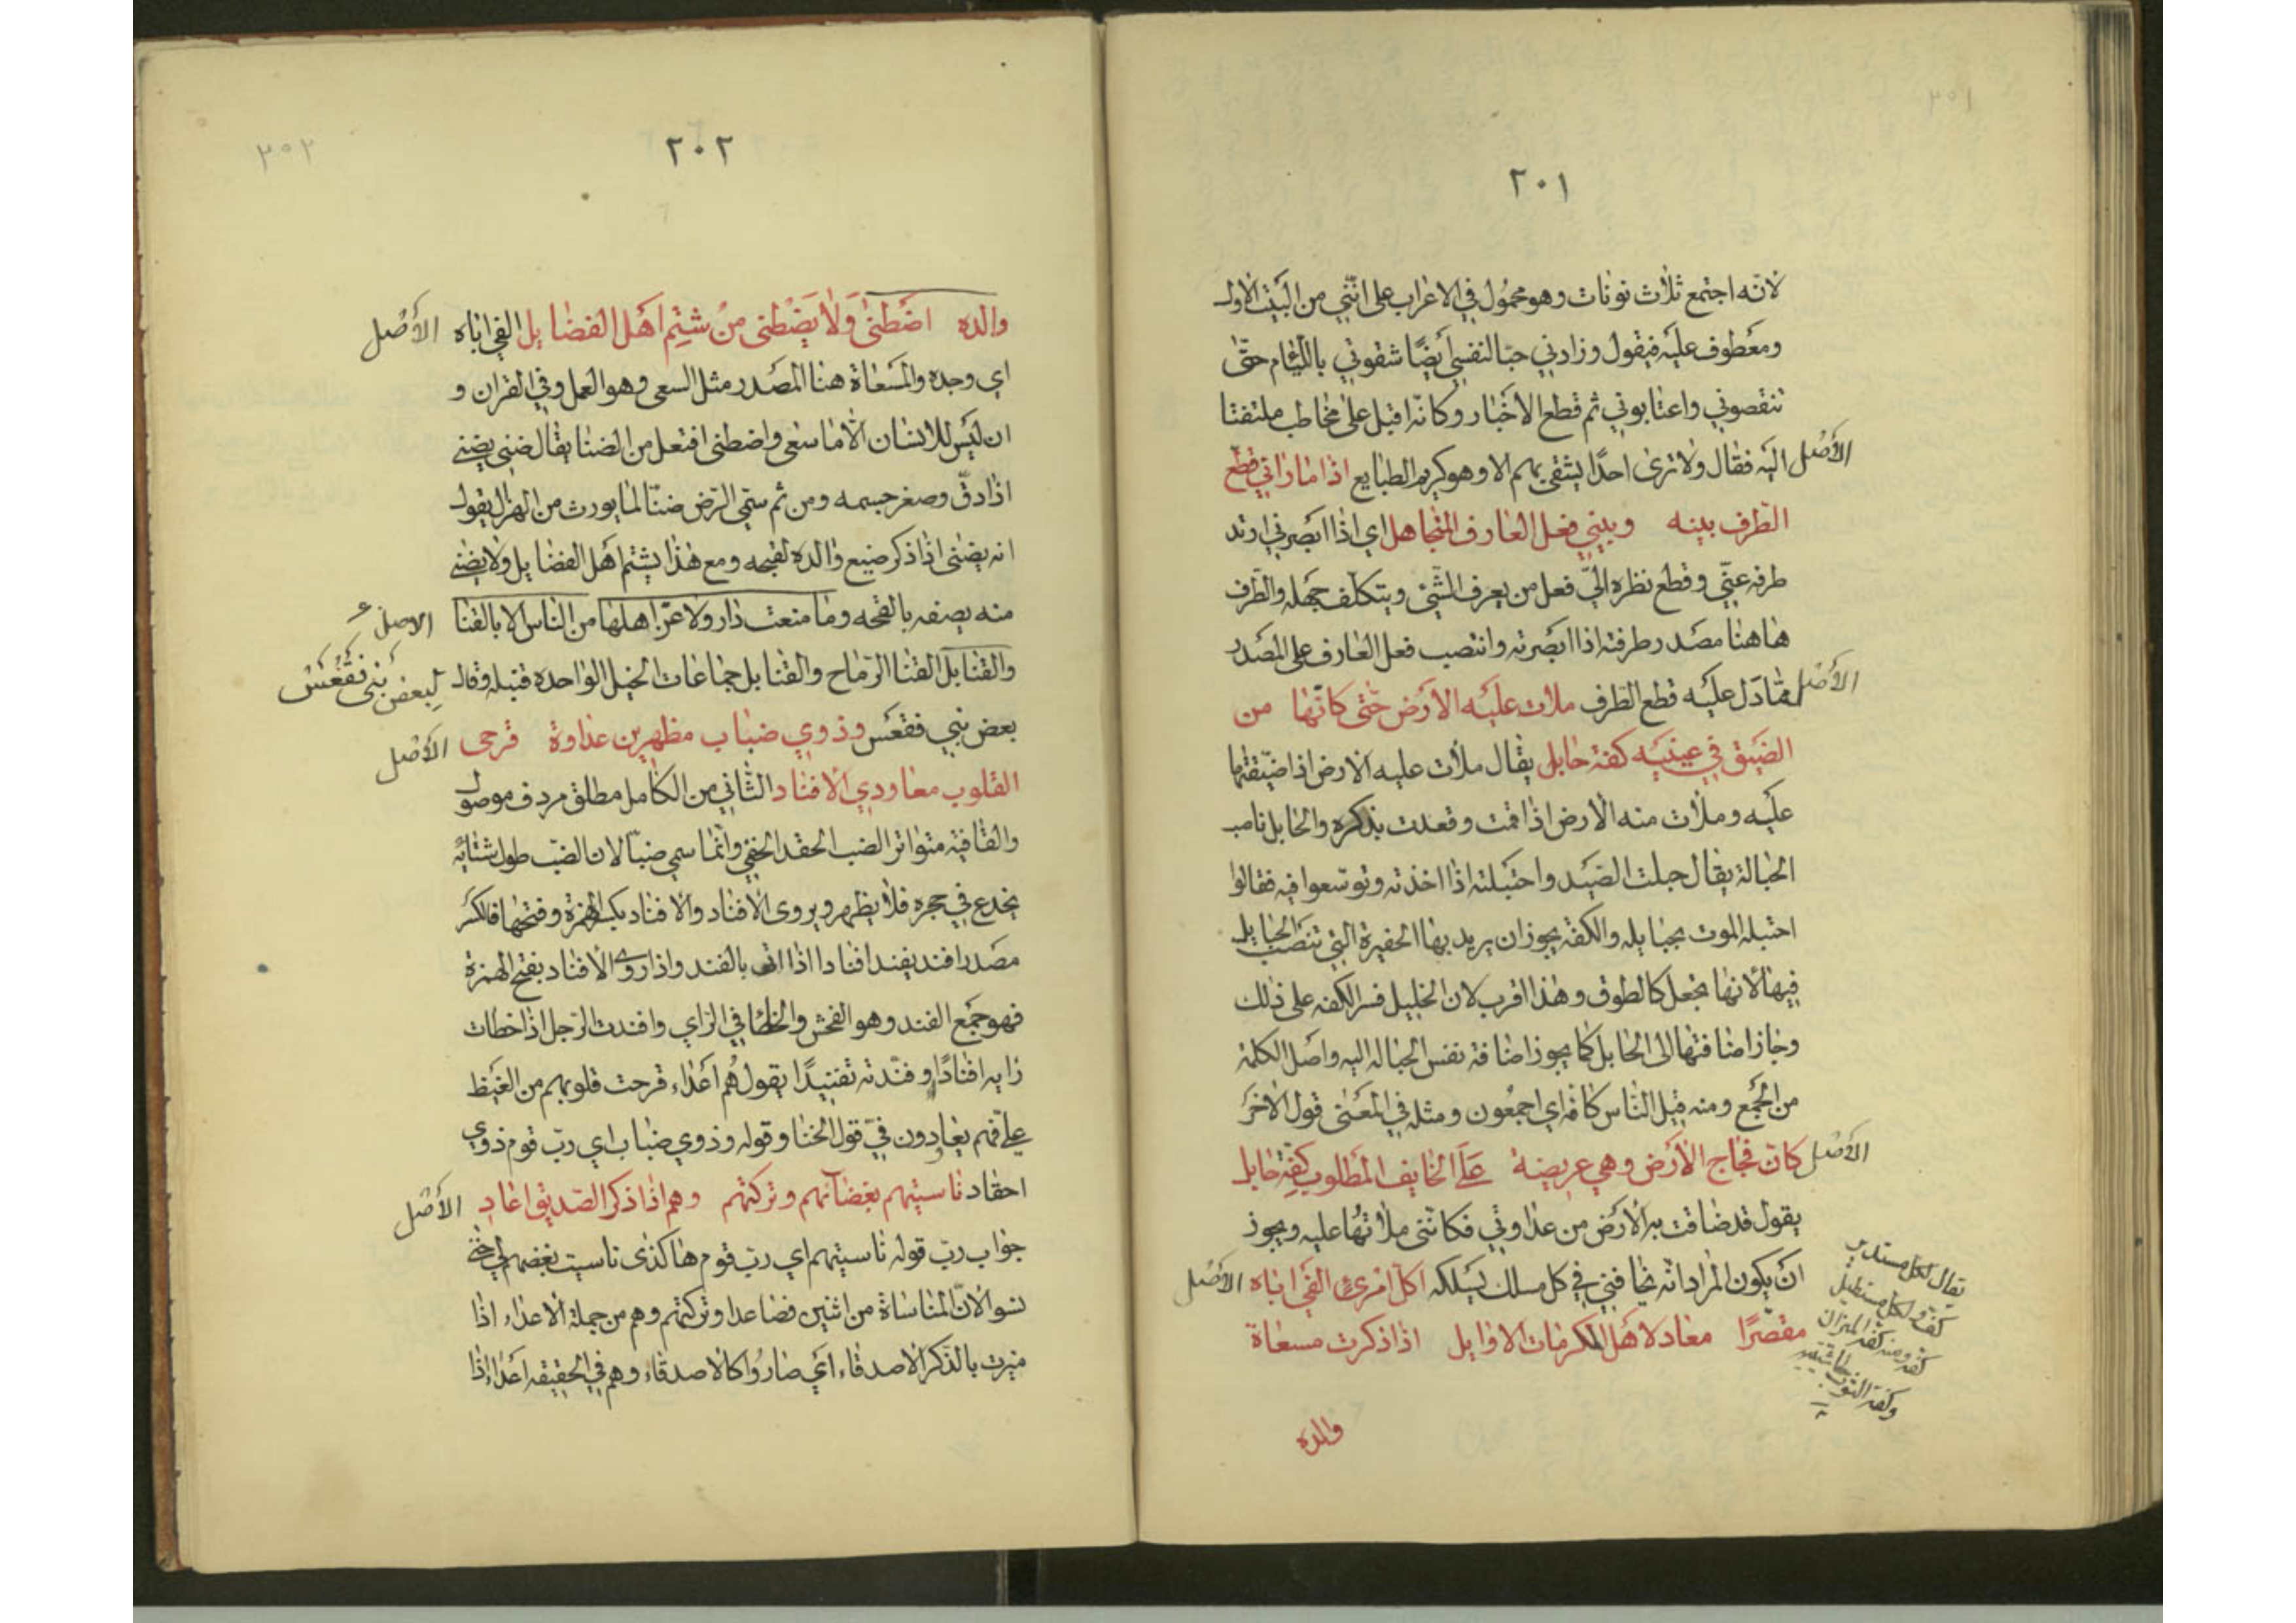 ٢٠١
لانه اجتمع ثلاث نونات وهو محمول في الاعراب على انني من البيت الاول
ومعطوف عليه فيقول وزادني حبا لنفسي ايضا شقوتي باللئام حتى
تنقصوني واعتابوني ثم قطع الاخبار وكانه اقبل على مخاطب ملتفتا
اليه فقال ولا ترى احدا يشقى بهم الا وهو كريم الطبايع اذا ما راني قطع
الاصل
الطرف بينه وبيني فعل العارف المتجاهل اي اذا ابصرني ارتد
طرفه عني وقطع نظره الي فعل من يعرف الشئ ويتكلف جهله والطرف
هاهنا مصدر طرفته اذا ابصرته وانتصب فعل العارف على المصدر
مما دل عليه قطع الطرف ملات عليه الارض حتى كانها من
الاصل
الضيق في عينيه كفة حابل يقال ملات عليه الارض اذا ضيقتها
عليه وملات منه الارض اذا قمت وقعدت بذكره والحابل ناصب
الحبالة يقال حبلت الصيد واحتبلته اذا اخذته وتوسعوا فيه فقالوا
احتبله الموت بحبايله والكفة يجوز ان يريد بها الحفيرة التي تنصب الحبايل
فيها لانها تجعل كالطوق وهذا اقرب لان الخليل فسر الكفه على ذلك
وجاز اضافتها الى الحابل كما يجوز اضافة نفس الحباله اليه واصل الكلمة
من الجمع ومنه قيل الناس كافه اي اجمعون ومثله في المعنى قول الاخر
كان فجاج الارض وهي عريضة على الخايف المطلوب كفة حابل
الاصل
يقول قد ضاقت به الارض من عداوتي فكانني ملاتها عليه ويجوز
ان يكون المراد انه يخافني في كل مسلك يسلكه اكل امرئ الفى اباه
الاصل
مقصرا معاد لاهل المكرمات الاوايل اذا ذكرت مسعاة
يقال لكل مستدير
كفة ولكل مستطيل
كفة ومنه كفة الميزان
وكفة الثوب
والده
٢٠٢
والده اضطنى ولا يضطنى من شتم اهل الفضايل الفى اباه
الاصل
اي وجده والمسعاة هنا المصدر مثل السعى وهو العمل وفي القران و
ان ليس للانسان الا ما سعى واضطنى افتعل من الضنا يقال ضني يضنى
اذا دق وصغر جسمه ومن ثم سمي المرض ضنا لما يورث من الهزال يقول
انه يضنى اذا ذكر صنيع والده لقبحه ومع هذا يشتم اهل الفضايل ولا يضنى
منه يصفه بالقحه وما منعت دار ولا عز اهلها من الناس الا بالقنا
الاصل
والقنابل القنا الرماح والقنابل جماعات الخيل الواحده قنبله وقال
لبعض بني فقعس
بعض بني فقعس وذوي ضباب مظهرين عداوة قرحى
الاصل
القلوب معاودي الافناد الثاني من الكامل مطلق مردف موصول
والقافية متواتر الضب الحقد الخفي وانما سمي ضبا لان الضب طول شتائه
يخدع في جحره فلا يظهر ويروى الافناد والافناد بكسر الهمزة وفتحها فالكسر
مصدر افند يفند افنادا اذا اتى بالفند واذا روى الافناد بفتح الهمزة
فهو جمع الفند وهو الفحش والخطا في الراي وافندت الرجل اذا خطات
رايه افنادا وفندته تفنيدا يقول هم اعداء قرحت قلوبهم من الغيظ
علي فهم يعادون في قول الخنا وقوله وذوي ضباب اي رب قوم ذوي
احقاد ناسيتهم بغضآنهم وتركتهم وهم اذا ذكر الصديق اعاد
الاصل
جواب رب قوله ناسيتهم اي رب قوم هاكذى ناسيت بغضهم لي حتى
نسوا لان المناساة من اثنين فصاعدا وتركتهم وهم من جملة الاعداء اذا
ميزت بالذكر الاصدقاء اي صاروا كالاصدقاء وهم في الحقيقه اعداء اذا